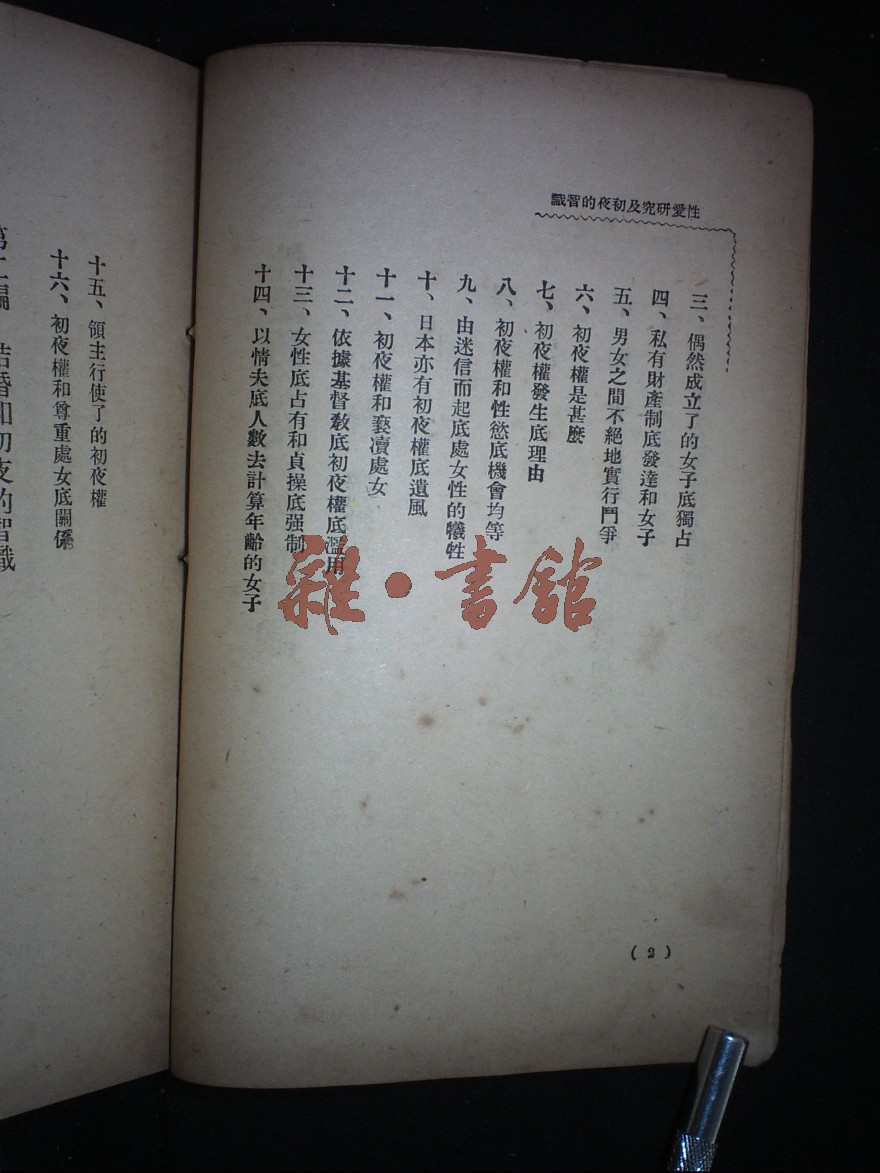 性愛研究及初夜的智識
三、偶然成立了的女子底獨占
四、私有財產制底發達和女子
五、男女之間不絕地實行鬥爭
六、初夜權是甚麼
七、初夜權發生底理由
八、初夜權和性慾底機會均等
九、由迷信而起底處女性的犧牲
十、日本亦有初夜權底遺風
十一、初夜權和褻凟處女
十二、依據基督敎底初夜權底濫用
十三、女性底占有和貞操底强制
十四、以情夫底人數去計算年齡的女子
(2)
十五、領主行使了的初夜權
十六、初夜權和尊重處女底關係
第二編 結婚和初夜的智識
雜·書館